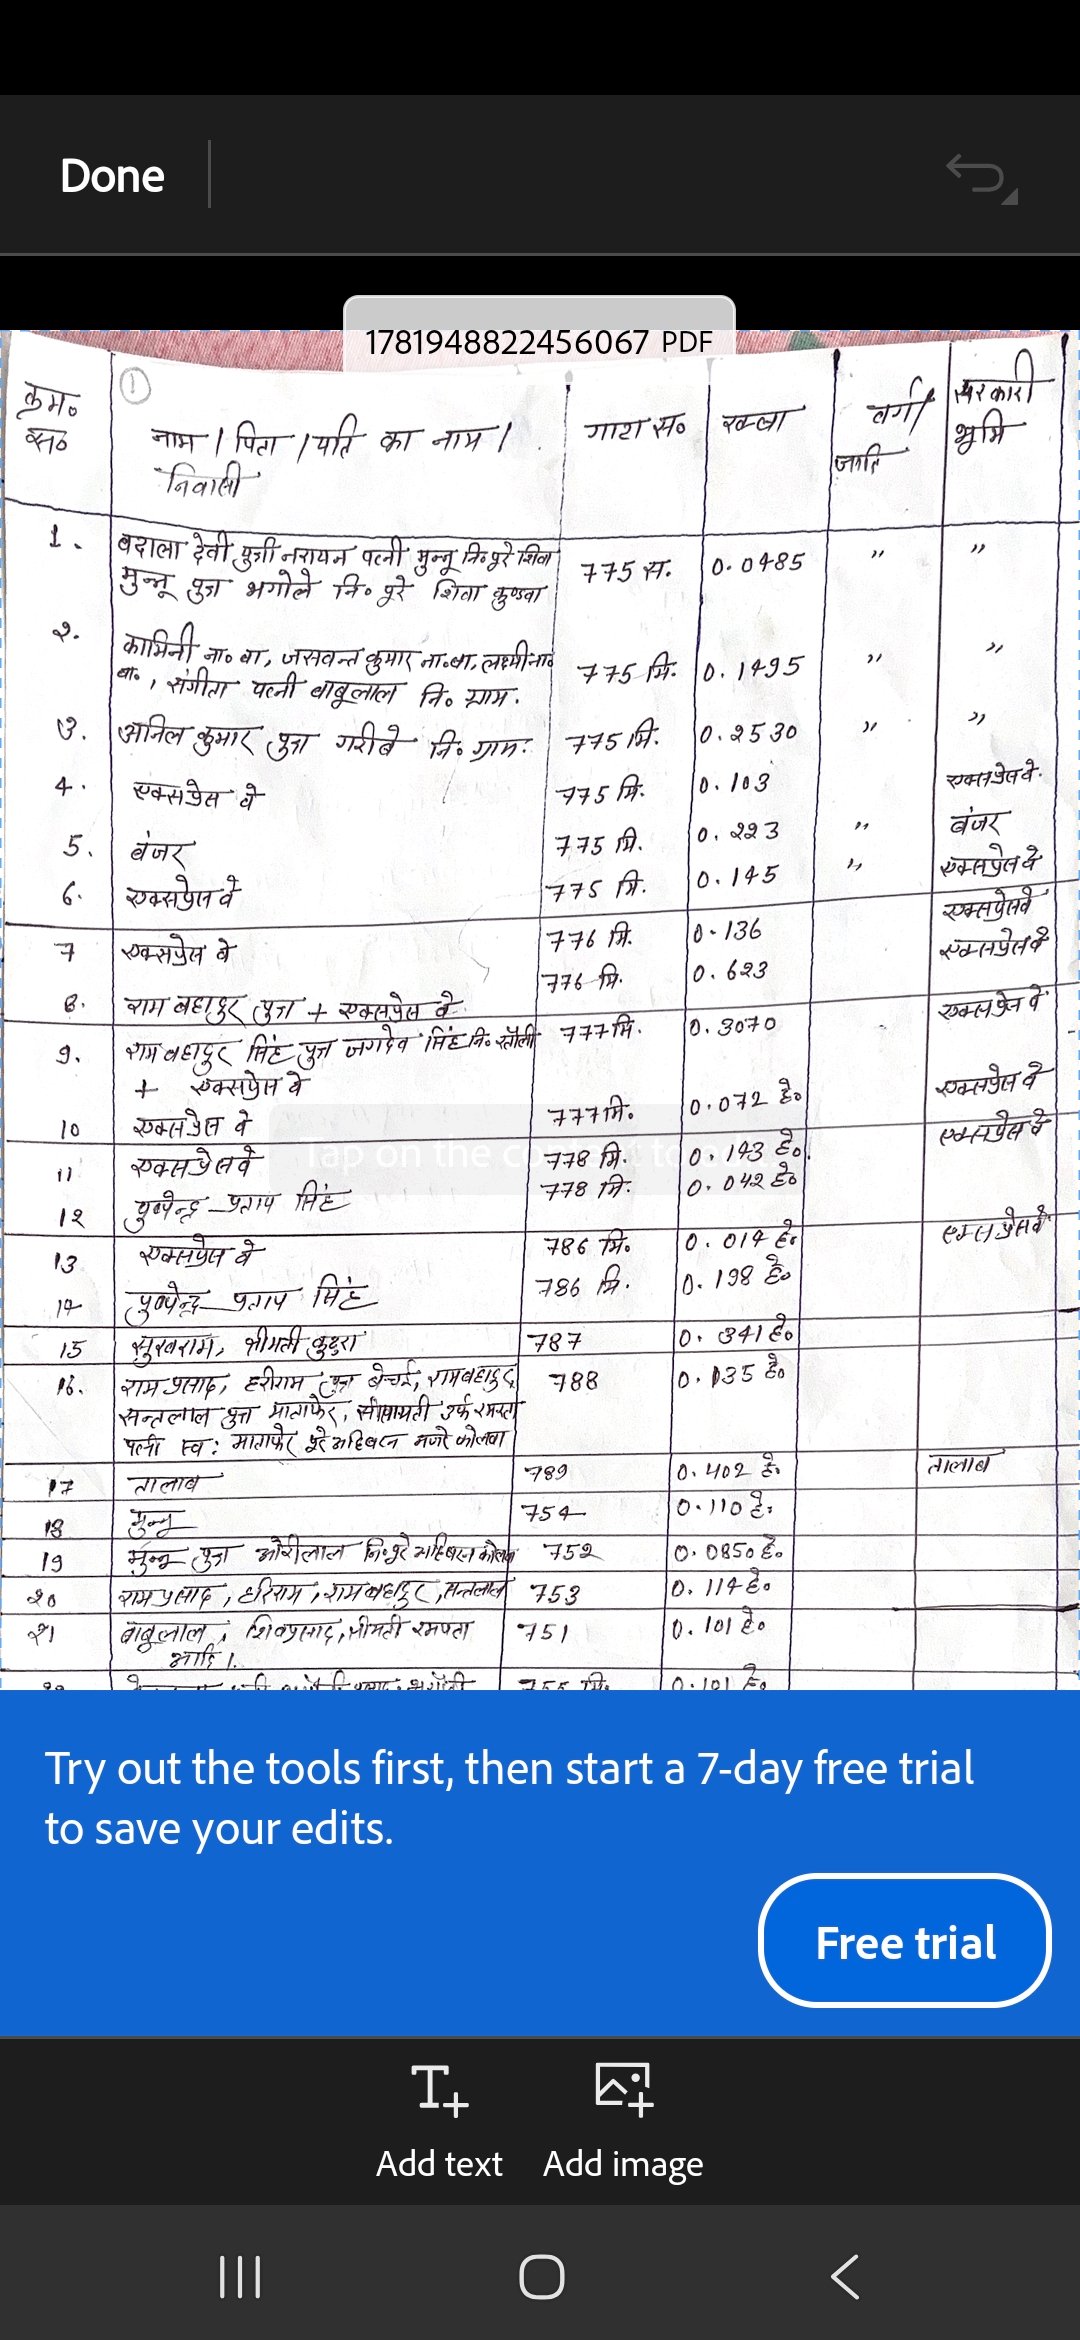 Done
1781948822456067 PDF
क्रम० स०
①
नाम / पिता / पति का नाम / निवासी
गाटा स०
रकबा
वर्ग/ जाति
सरकारी भूमि
1. देवी पुत्री नरायन पत्नी मुन्नू नि० पूरे शिवा 775 स. 0.0485 " "
मुन्नू पुत्र भगोले नि० पूरे शिवा कुण्डवा
२. कामिनी ना० बा, जसवन्त कुमार ना.बा, लक्ष्मी ना० 775 मि. 0.1495 " "
बा०, संगीता पत्नी बाबूलाल नि० ग्राम.
3. अनिल कुमार पुत्र गरीबे नि० ग्राम. 775 मि. 0.2530 " "
4. एक्सप्रेस वे 775 मि. 0.103 एक्सप्रेस वे.
5. बंजर 775 मि. 0.223 " बंजर
6. एक्सप्रेस वे 775 मि. 0.145 " एक्सप्रेस वे
7 एक्सप्रेस वे 776 मि. 0.136 एक्सप्रेसवे
8. राम बहादुर पुत्र + एक्सप्रेस वे 776 मि. 0.623 एक्सप्रेसवे
9. राम बहादुर सिंह पुत्र जगदेव सिंह नि. 777 मि. 0.3070 एक्सप्रेस वे
+ एक्सप्रेस वे
10 एक्सप्रेस वे 777 मि. 0.072 हे० एक्सप्रेस वे
Tap on the content to
11 एक्सप्रेसवे 778 मि. 0.143 हे०. एक्सप्रेस वे
12 पुष्पेन्द्र प्रताप सिंह 778 मि. 0.042 हे०
13 एक्सप्रेस वे 786 मि. 0.014 हे. एक्सप्रेसवे
14 पुष्पेन्द्र प्रताप सिंह 786 मि. 0.198 हे०
15 सुखराम, श्रीमती 787 0.341 हे०
16. राम प्रसाद, हरीराम पुत्र बेचई, रामबहादुर, 788 0.135 हे०
सन्तलाल पुत्र माताफेर, उर्फ रमपता
पत्नी स्व: माताफेर पूरे अहिबरन मजरे कोलवा
17 तालाब 789 0.402 हे. तालाब
18 मुन्नू 754 0.110 हे.
19 मुन्नू पुत्र ओरीलाल नि. पूरे अहिबरन कोलवा 752 0.0850 हे०
२० राम प्रसाद, हरिराम, राम बहादुर, सन्तलाल 753 0.114 हे०
२१ बाबूलाल, शिवप्रसाद, श्रीमती रमपता 751 0.101 हे०
आदि।
755 मि. 0.101 हे०
Try out the tools first, then start a 7-day free trial
to save your edits.
Free trial
Add text
Add image